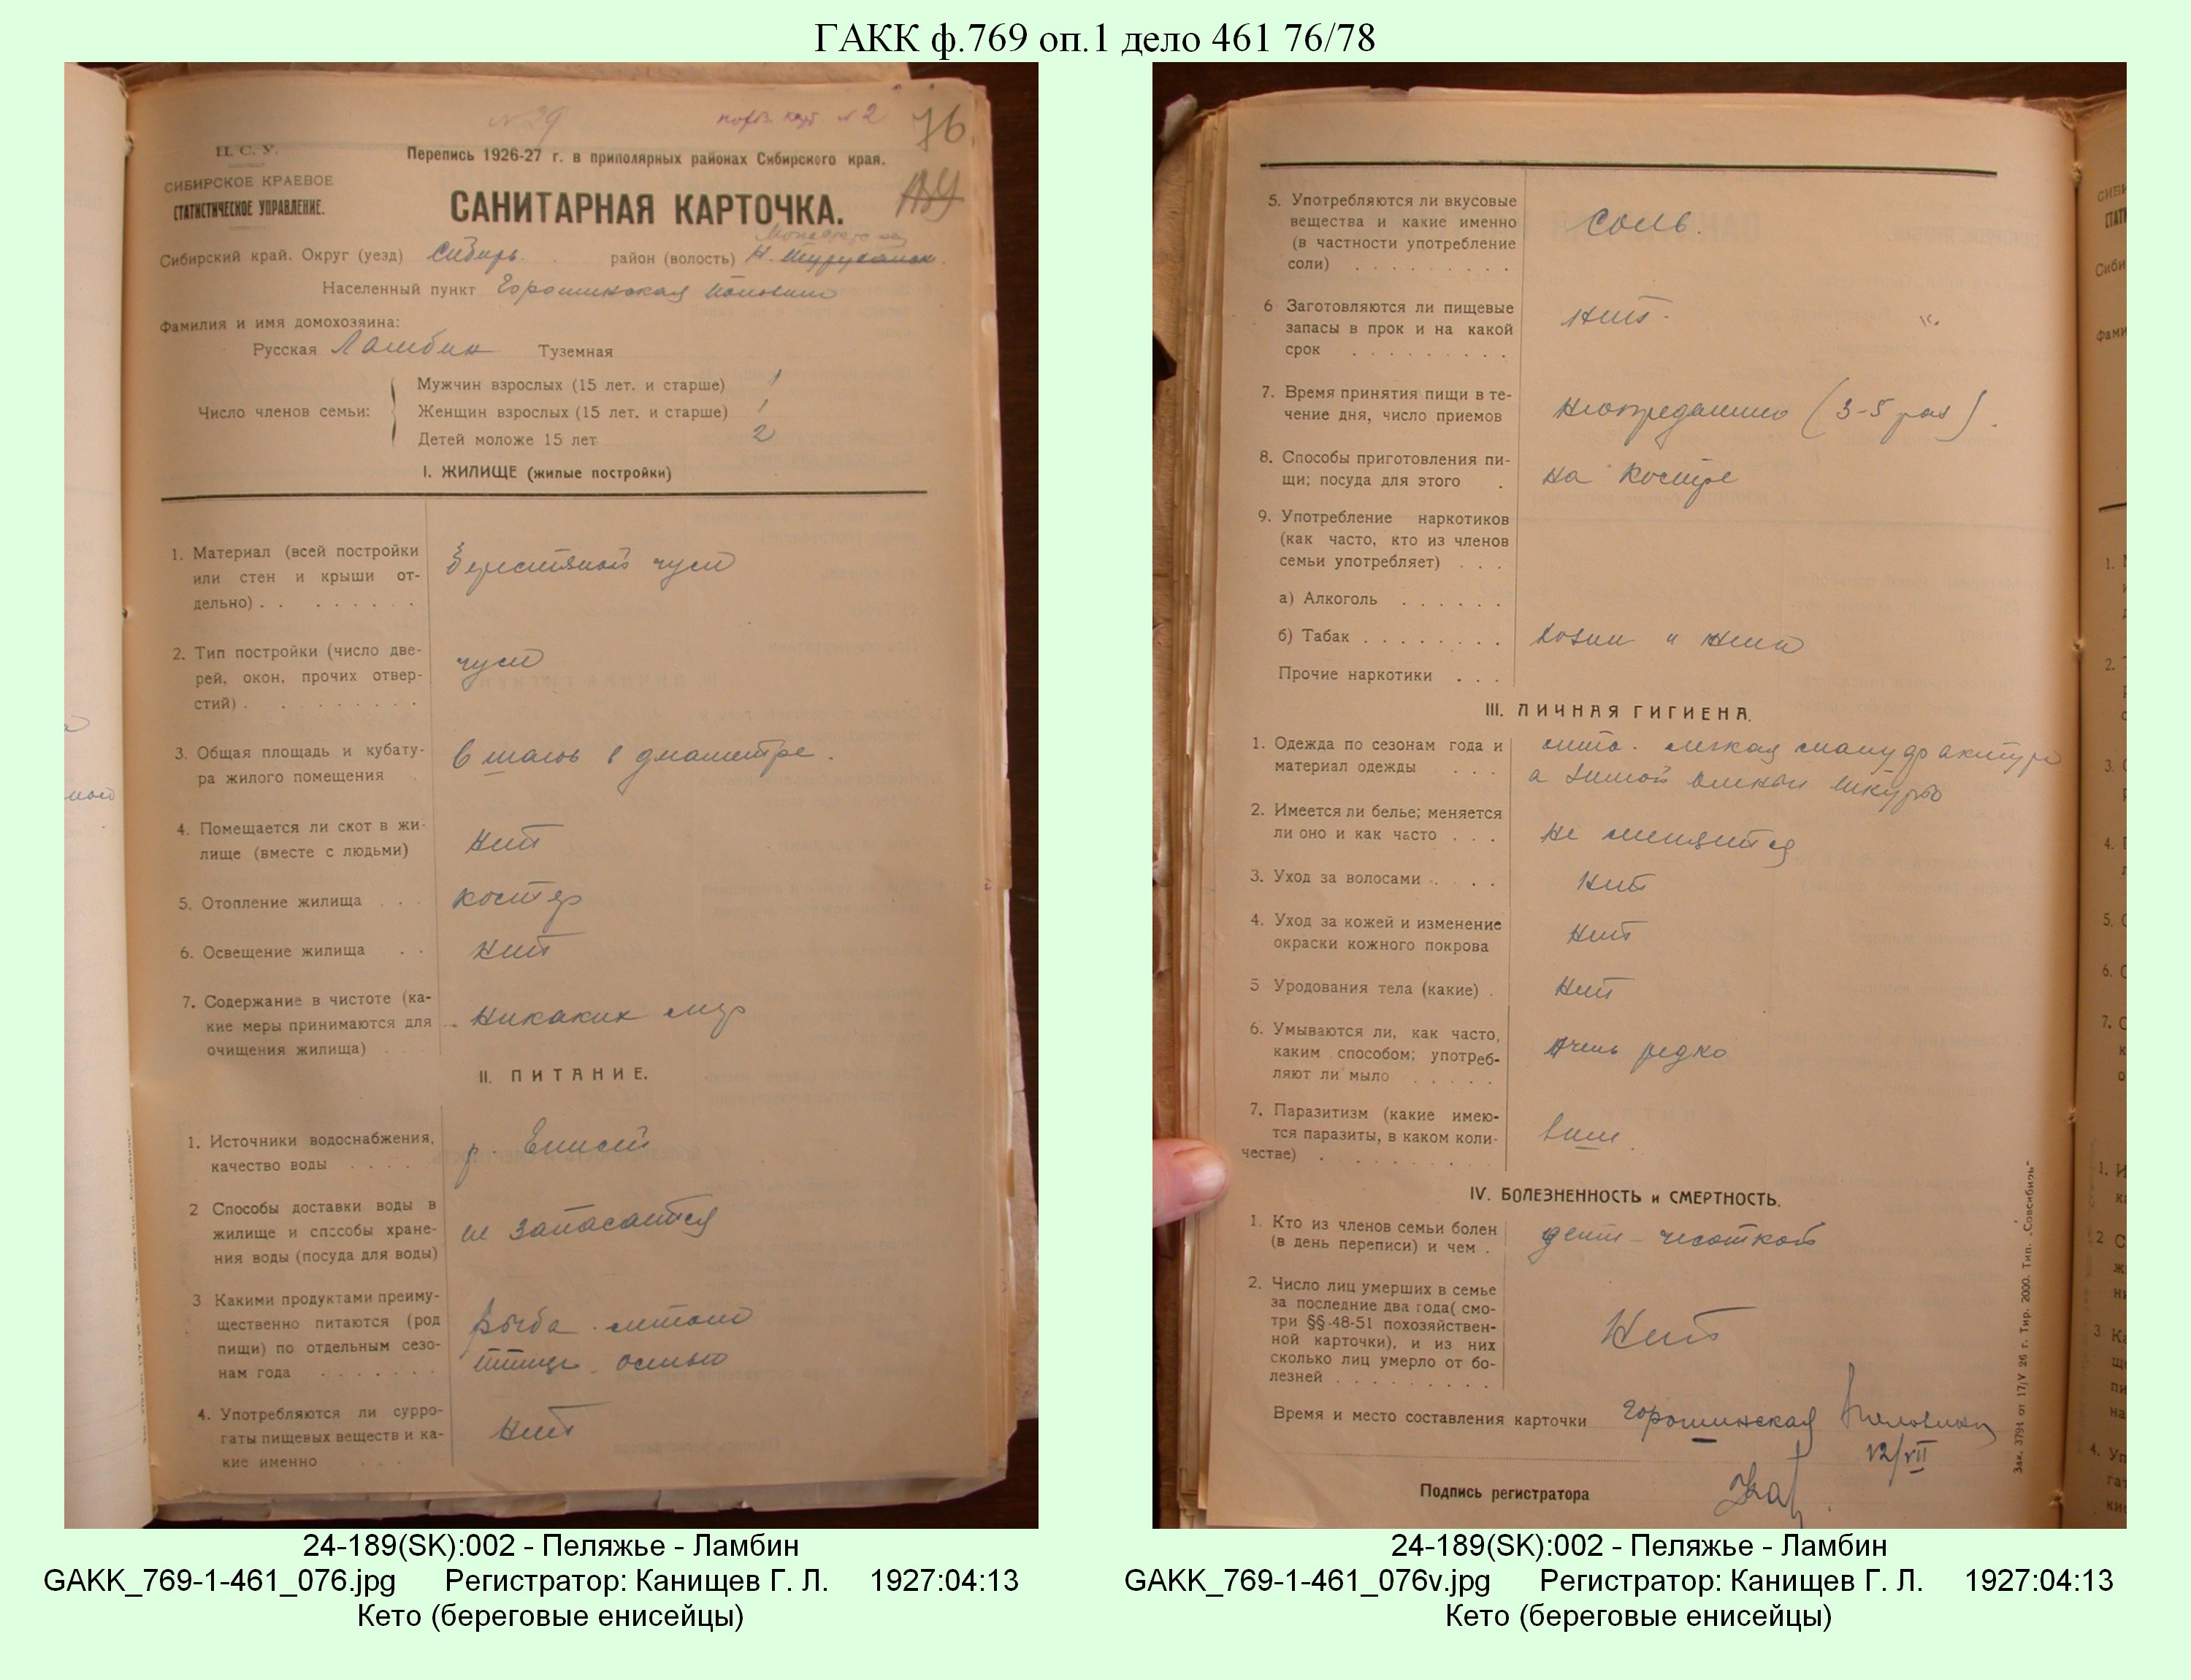 ГАКК ф.769 оп.1 дело 461 76/78
N 29
похоз. карт. N 2
76.
Ц. С. У.
СИБИРСКОЕ КРАЕВОЕ
СТАТИСТИЧЕСКОЕ УПРАВЛЕНИЕ.
Перепись 1926-27 г. в приполярных районах Сибирского края.
САНИТАРНАЯ КАРТОЧКА.
Сибирский край. Округ (уезд) Сибирь. район (волость) Н. Туруханск.
Населенный пункт Горошинская
Фамилия и имя домохозяина:
Русская Ламбин Туземная
Число членов семьи:
Мужчин взрослых (15 лет. и старше) 1
Женщин взрослых (15 лет. и старше) 1
Детей моложе 15 лет 2
I. ЖИЛИЩЕ (жилые постройки)
1. Материал (всей постройки
или стен и крыши от-
дельно) . . . . . . . .
Берестяной чум
2. Тип постройки (число две-
рей, окон, прочих отвер-
стий) . . . . . . . . .
чум
3. Общая площадь и кубату-
ра жилого помещения
6 шагов в диаметре.
4. Помещается ли скот в жи-
лище (вместе с людьми)
Нет
5. Отопление жилища . . .
костер
6. Освещение жилища . .
нет
7. Содержание в чистоте (ка-
кие меры принимаются для
очищения жилища) . .
никаких мер
II. ПИТАНИЕ.
1. Источники водоснабжения,
качество воды . . . .
р. Енисей
2 Способы доставки воды в
жилище и способы хране-
ния воды (посуда для воды)
не запасается
3 Какими продуктами преиму-
щественно питаются (род
пищи) по отдельным сезо-
нам года . . . . . . .
Рыба - летом
птица - осенью
4. Употребляются ли сурро-
гаты пищевых веществ и ка-
кие именно . . .
нет
24-189(SK):002 - Пеляжье - Ламбин
GAKK_769-1-461_076.jpg Регистратор: Канищев Г. Л. 1927:04:13
Кето (береговые енисейцы)
5. Употребляются ли вкусовые
вещества и какие именно
(в частности употребление
соли) . . . . . . . . .
соль.
6 Заготовляются ли пищевые
запасы в прок и на какой
срок . . . . . . . . .
нет.
7. Время принятия пищи в те-
чение дня, число приемов
неопределенно (3-5 раз).
8. Способы приготовления пи-
щи; посуда для этого .
на костре
9. Употребление наркотиков
(как часто, кто из членов
семьи употребляет) . . .
а) Алкоголь . . . . . .
б) Табак . . . . . . . .
хозяин и жена
Прочие наркотики . . .
III. ЛИЧНАЯ ГИГИЕНА.
1. Одежда по сезонам года и
материал одежды . . .
лето. легкая
а зимой оленьи шкуры
2. Имеется ли белье; меняется
ли оно и как часто . . .
не меняется
3. Уход за волосами . . . .
нет
4. Уход за кожей и изменение
окраски кожного покрова
нет
5 Уродования тела (какие) .
нет
6. Умываются ли, как часто,
каким способом; употреб-
ляют ли мыло . . . . .
очень редко
7. Паразитизм (какие имею-
тся паразиты, в каком коли-
честве) . . . . . . . .
вши.
IV. БОЛЕЗНЕННОСТЬ и СМЕРТНОСТЬ.
1. Кто из членов семьи болен
(в день переписи) и чем .
дети - чесоткой
2. Число лиц умерших в семье
за последние два года( смо-
три §§-48-51 похозяйствен-
ной карточки), и из них
сколько лиц умерло от бо-
лезней . . . . . . . . .
Нет
Время и место составления карточки Горошинская
12/VII
Подпись регистратора
Зак. 3794 от 17/V 26 г. Тир. 2000. Тип. „Совсибирь"
24-189(SK):002 - Пеляжье - Ламбин
GAKK_769-1-461_076v.jpg Регистратор: Канищев Г. Л. 1927:04:13
Кето (береговые енисейцы)